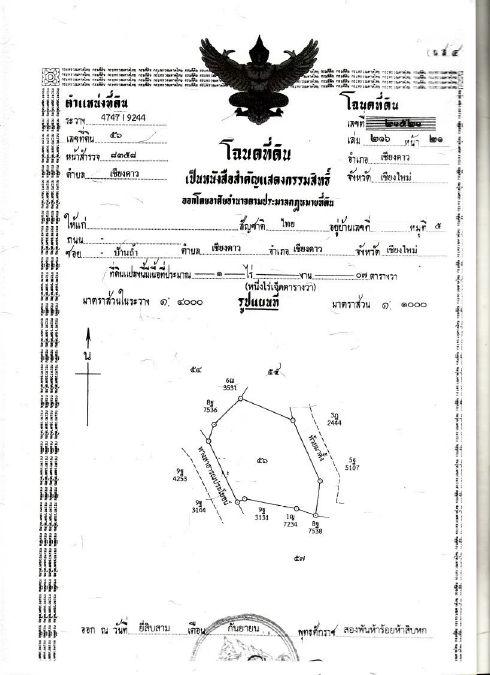 (น.ส.๔
ตำแหน่งที่ดิน
ระวาง 4747 I 9244
เลขที่ดิน ๕๖
หน้าสำรวจ ๘๓๕๘
ตำบล เชียงดาว
โฉนดที่ดิน
เลขที่ ๒๑๕๒๑
เล่ม ๒๑๖ หน้า ๒๑
อำเภอ เชียงดาว
จังหวัด เชียงใหม่
โฉนดที่ดิน
เป็นหนังสือสำคัญแสดงกรรมสิทธิ์
ออกโดยอาศัยอำนาจตามประมวลกฎหมายที่ดิน
ให้แก่ สัญชาติ ไทย อยู่บ้านเลขที่ หมู่ที่ ๕
ถนน -
ซอย - บ้านถ้ำ ตำบล เชียงดาว อำเภอ เชียงดาว จังหวัด เชียงใหม่
ที่ดินแปลงนี้มีเนื้อที่ประมาณ ๑ ไร่ - งาน ๐๗ ตารางวา
(หนึ่งไร่เจ็ดตารางวา)
มาตราส่วนในระวาง ๑: ๔๐๐๐ รูปแผนที่ มาตราส่วน ๑: ๑๐๐๐
น
๕๔
๕๕
6ฌ
3531
8ฐ
7536
3ฎ
2444
ห้วยแม่
ทางสาธารณประโยชน์
๕๖
5ฐ
5107
9ฐ
4253
9ฐ
3144
9ฐ
3131
1ญ
7234
8ฐ
7538
๕๗
ออก ณ วันที่ ยี่สิบสาม เดือน กันยายน พุทธศักราช สองพันห้าร้อยห้าสิบหก